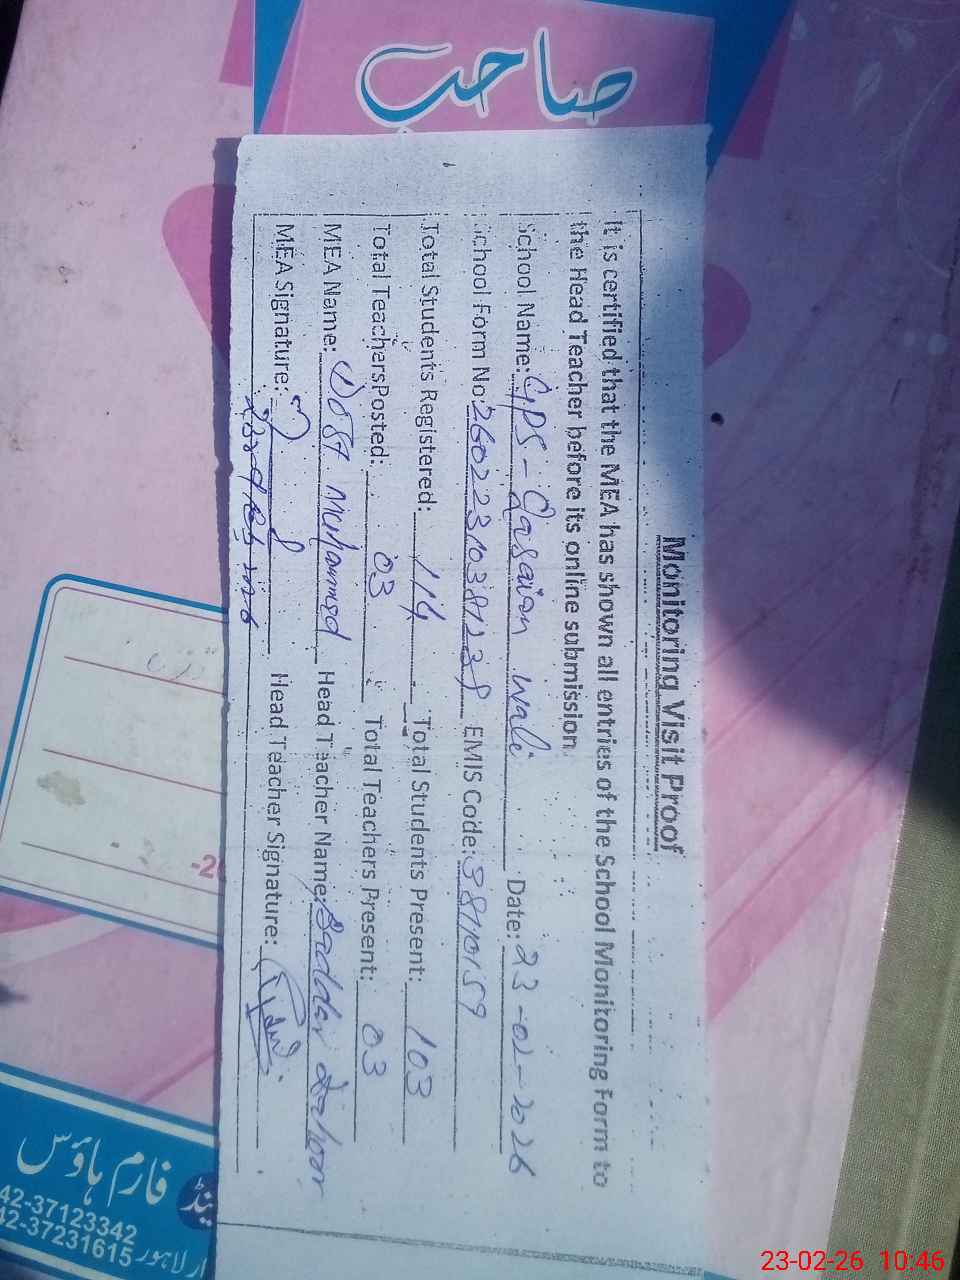 صاحب
Monitoring Visit Proof
It is certified that the MEA has shown all entries of the School Monitoring Form to
the Head Teacher before its online submission.
School Name: GPS - Qasaian Wali Date: 23-02-2026
School Form No: EMIS Code: 38110159
Total Students Registered: 114 Total Students Present: 103
Total Teachers Posted: 03 Total Teachers Present: 03
MEA Name: Dost Muhammad Head Teacher Name:
MEA Signature: Head Teacher Signature:
فارم ہاؤس
لاہور
42-37123342
42-37231615
23-02-26 10:46